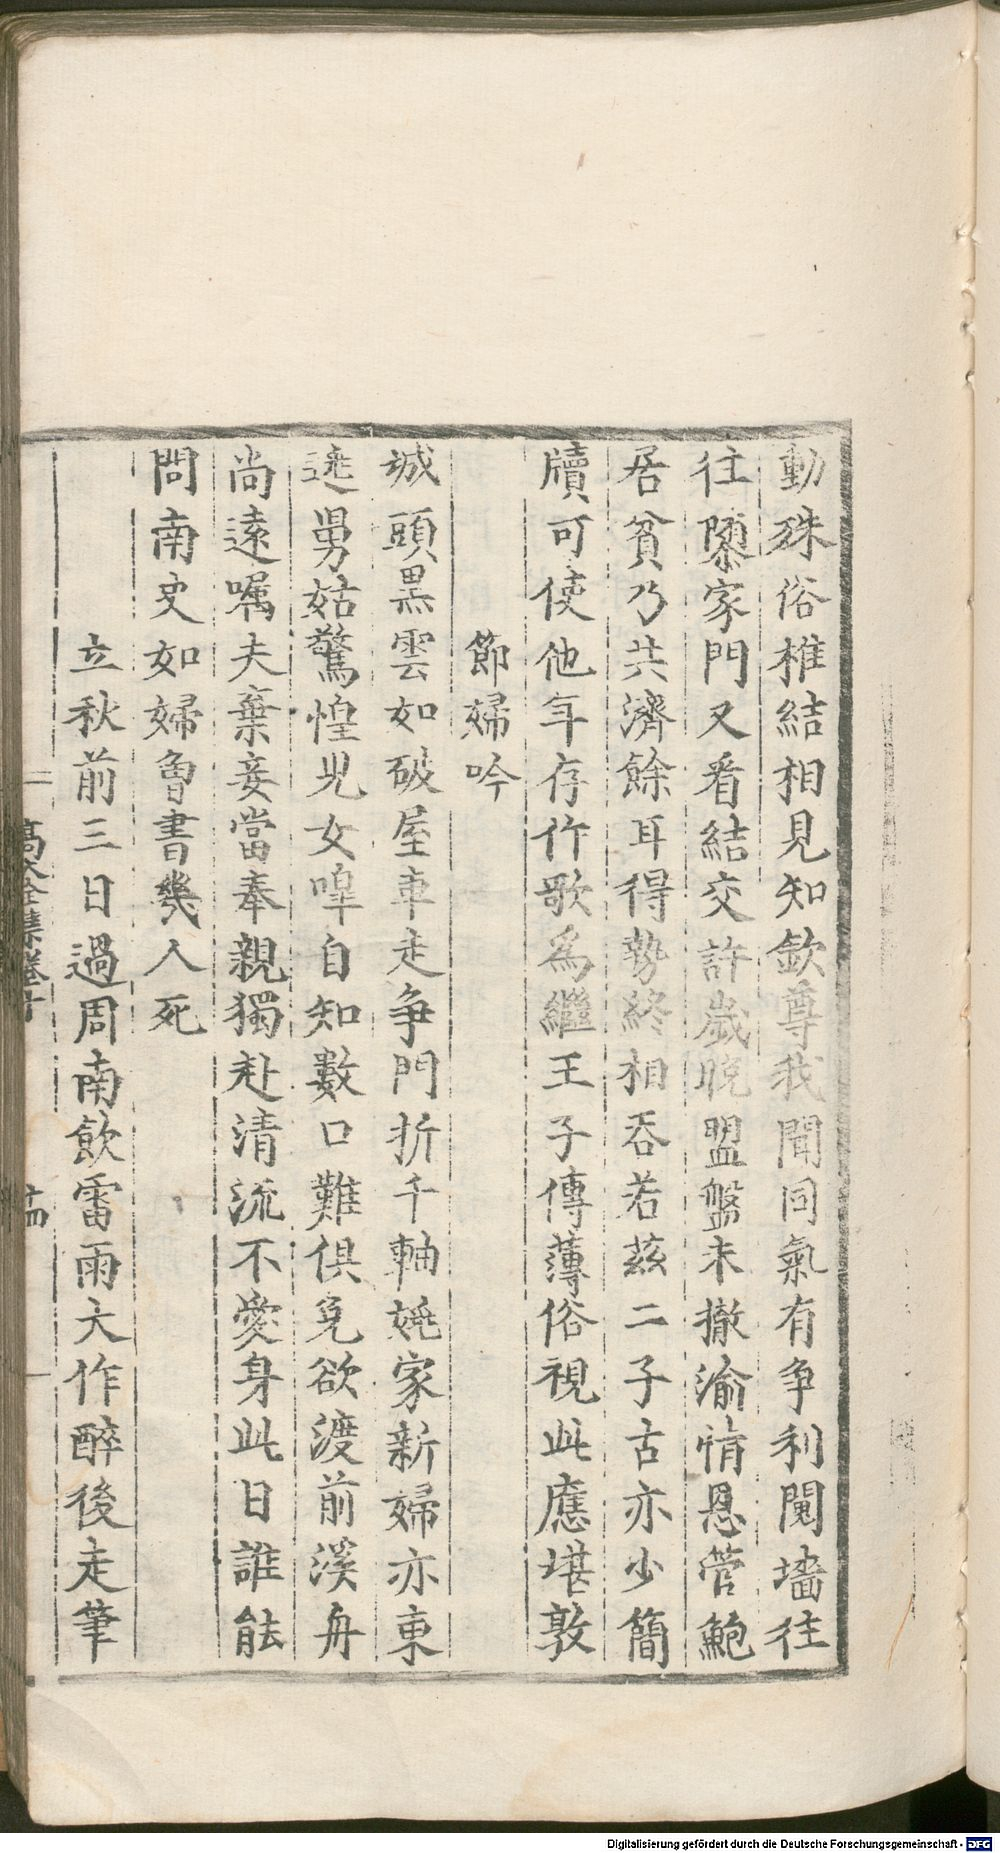 動殊俗椎結相見知欽尊我聞同氣有爭利鬩墻往
往隳家門又看結交許歲晚盟盤未撤渝情恩管鮑
居貧乃共濟餘耳得勢終相吞若茲二子古亦少簡
牘可使他年存作歌為繼王子傳薄俗視此應堪敦
節婦吟
城頭黑雲如破屋車走爭門折千軸姚家新婦亦東
逃舅姑驚惶兒女嘷自知數口難俱免欲渡前溪舟
尚遠囑夫棄妾當奉親獨赴清流不愛身此日誰能
問南史如婦魯書幾人死
立秋前三日過周南飲雷雨大作醉後走筆
高全集卷十
十四
Digitalisierung gefördert durch die Deutsche Forschungsgemeinschaft - DFG